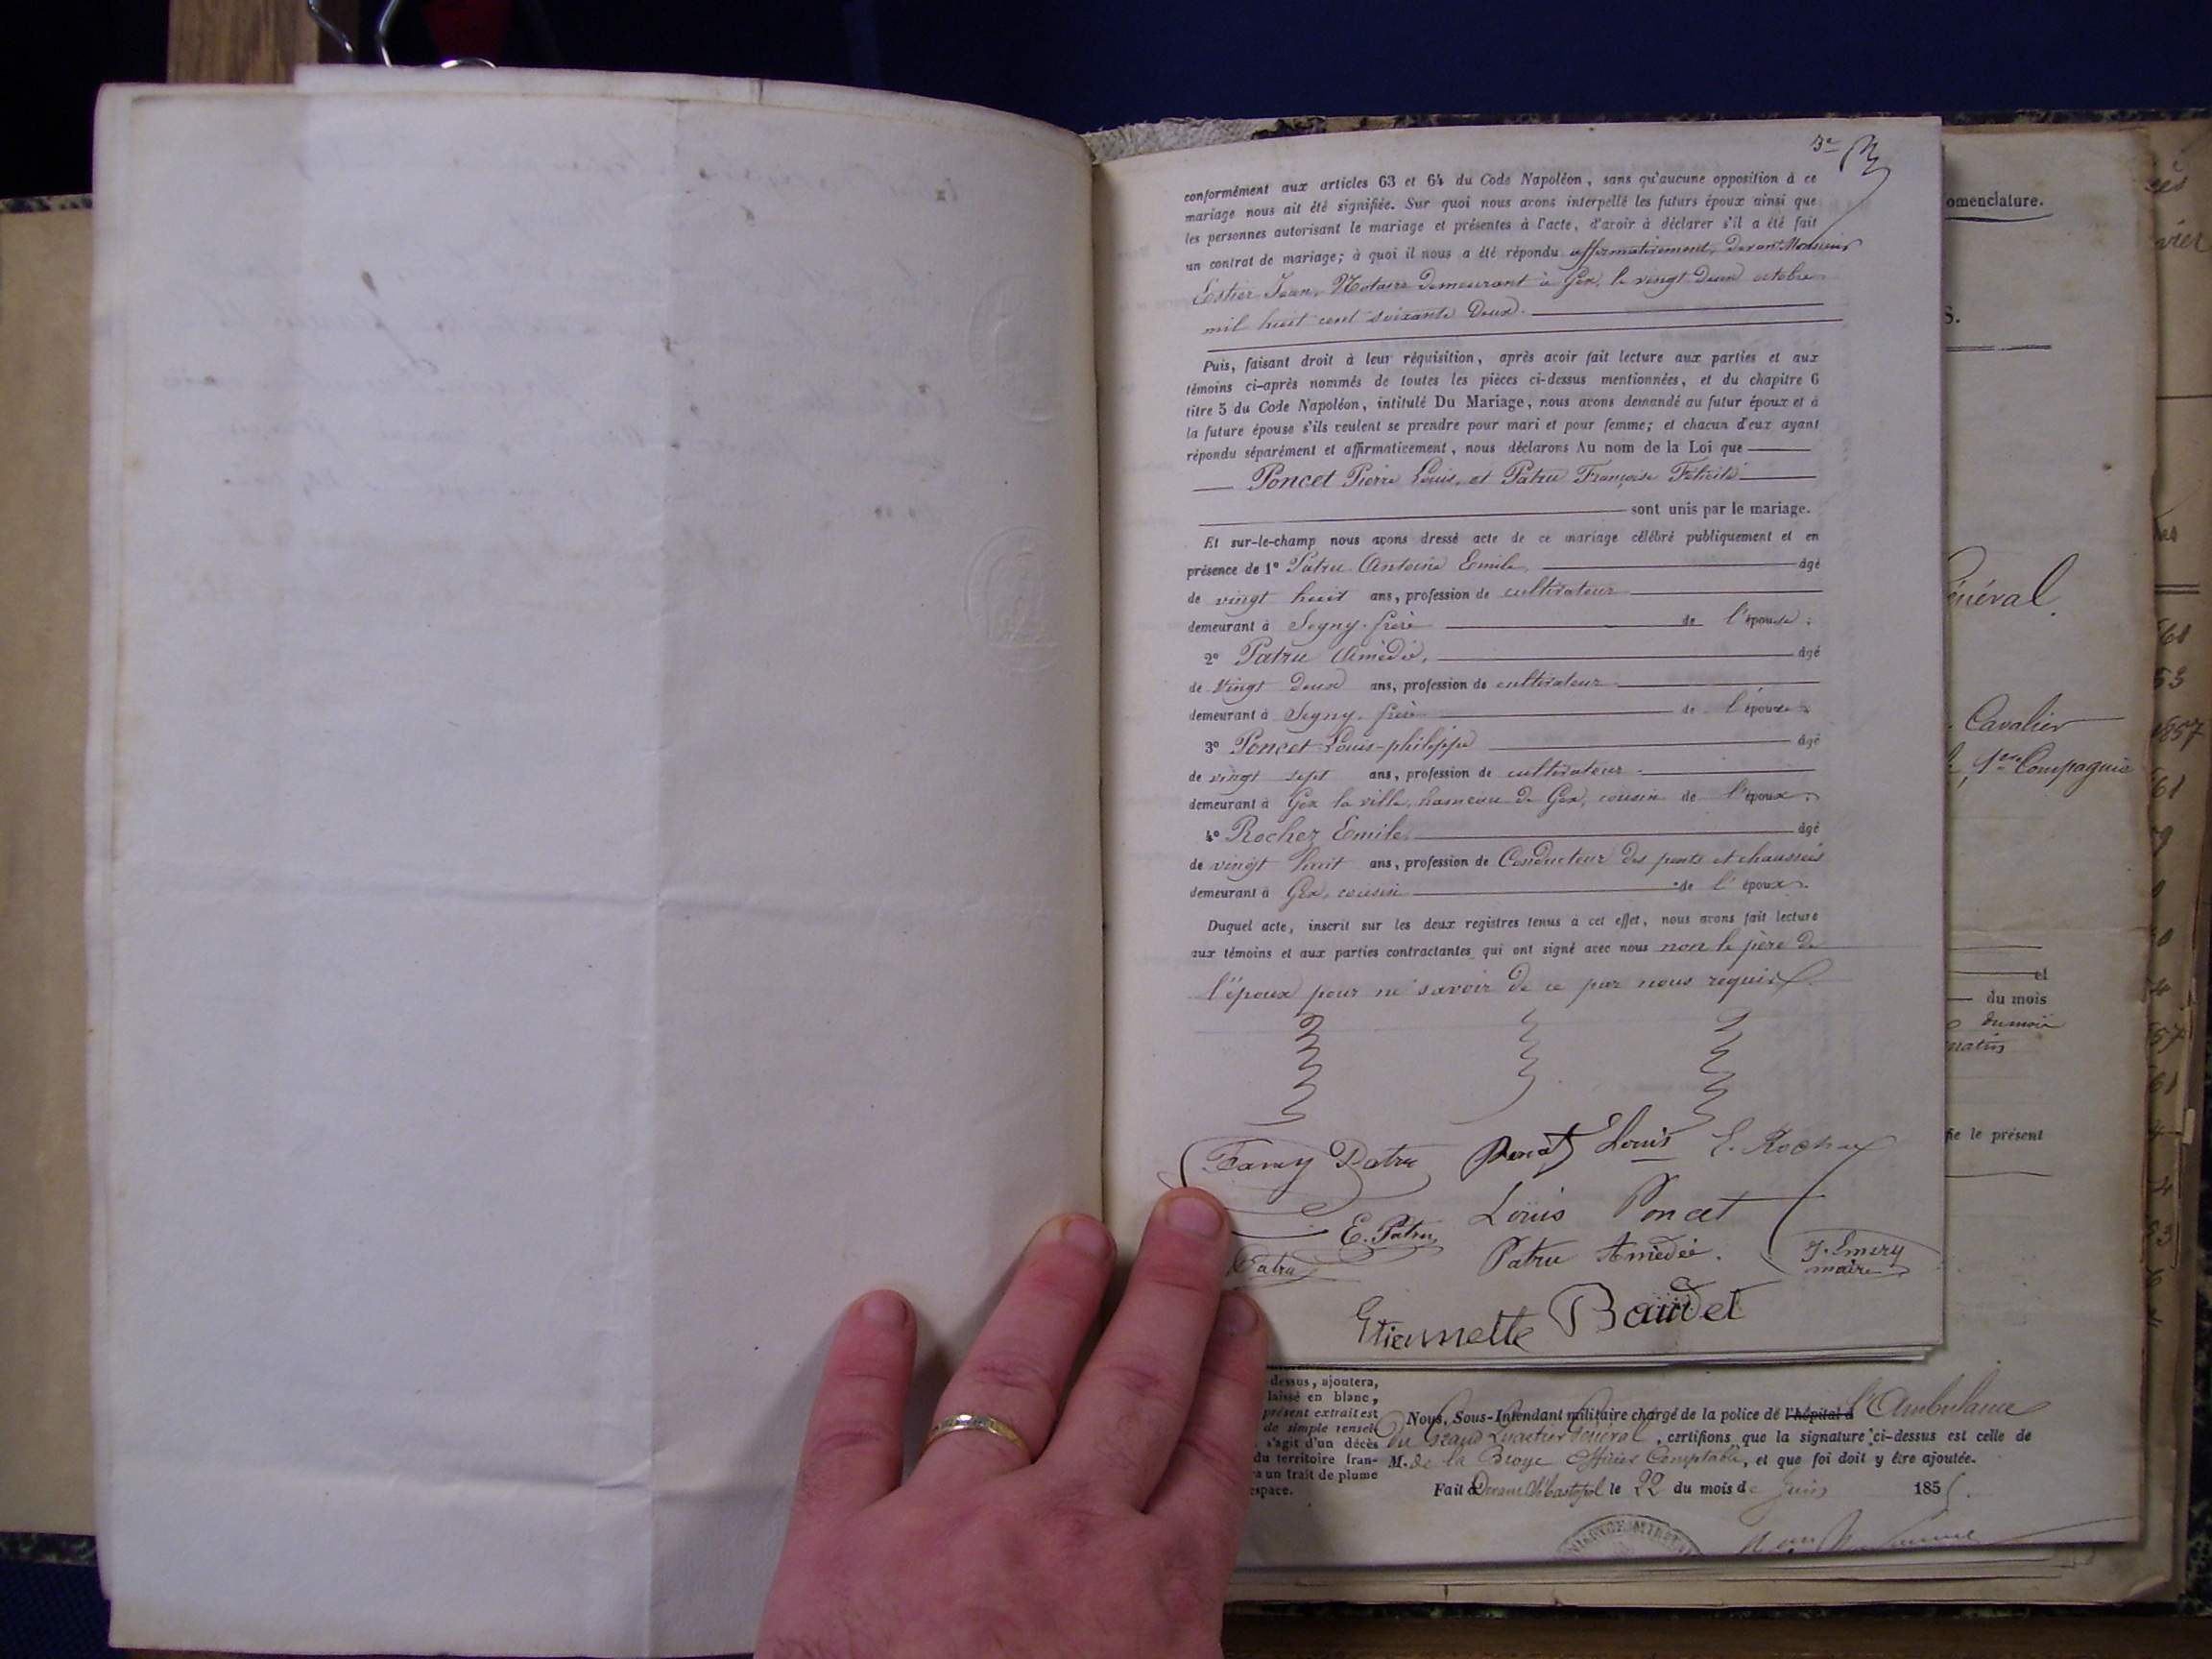 3e
conformément aux articles 63 et 64 du Code Napoléon, sans qu'aucune opposition à ce
mariage nous ait été signifiée. Sur quoi nous avons interpellé les futurs époux ainsi que
les personnes autorisant le mariage et présentes à l'acte, d'avoir à déclarer s'il a été fait
un contrat de mariage; à quoi il nous a été répondu affirmativement, devant Monsieur
Estier Jean, Notaire demeurant à Gex, le vingt deux octobre
mil huit cent soixante deux.
Puis, faisant droit à leur réquisition, après avoir fait lecture aux parties et aux
témoins ci-après nommés de toutes les pièces ci-dessus mentionnées, et du chapitre 6
titre 5 du Code Napoléon, intitulé Du Mariage, nous avons demandé au futur époux et à
la future épouse s'ils veulent se prendre pour mari et pour femme; et chacun d'eux ayant
répondu séparément et affirmativement, nous déclarons Au nom de la Loi que
Poncet Pierre Louis, et Patru Françoise Félicité
sont unis par le mariage.
Et sur-le-champ nous avons dressé acte de ce mariage célébré publiquement et en
présence de 1º Patru Antoine Emile, âgé
de vingt huit ans, profession de cultivateur
demeurant à Segny, frère de l'épouse;
2º Patru Amédé, âgé
de vingt deux ans, profession de cultivateur
demeurant à Segny, frère de l'épouse;
3º Poncet Louis-philippe âgé
de vingt sept ans, profession de cultivateur
demeurant à Gex la ville, hameau de Gex, cousin de l'époux;
4º Rochez Emile, âgé
de vingt huit ans, profession de Conducteur des ponts et chaussées
demeurant à Gex, cousin de l'époux.
Duquel acte, inscrit sur les deux registres tenus à cet effet, nous avons fait lecture
aux témoins et aux parties contractantes qui ont signé avec nous non le père de
l'époux pour ne savoir de ce par nous requis.
Fany Patru Poncet Louis E. Rochez
E. Patru Louis Poncet
Patru Patru Amédée. J. Emery
maire
Etiennette Baudet
omenclature.
S.
énéral.
Cavalier
1re Compagnie
et
du mois
du mois
matin
fie le présent
dessus, ajoutera,
laissé en blanc,
présent extrait est
de simple rensei-
s'agit d'un décès
du territoire fran-
a un trait de plume
espace.
Nous, Sous-Intendant militaire chargé de la police de l'hôpital d l'Ambulance
du Grand Quartier Général, certifions que la signature ci-dessus est celle de
M. de la Broye Officier Comptable, et que foi doit y être ajoutée.
Fait à Devant Sébastopol le 22 du mois de Juin 1855.